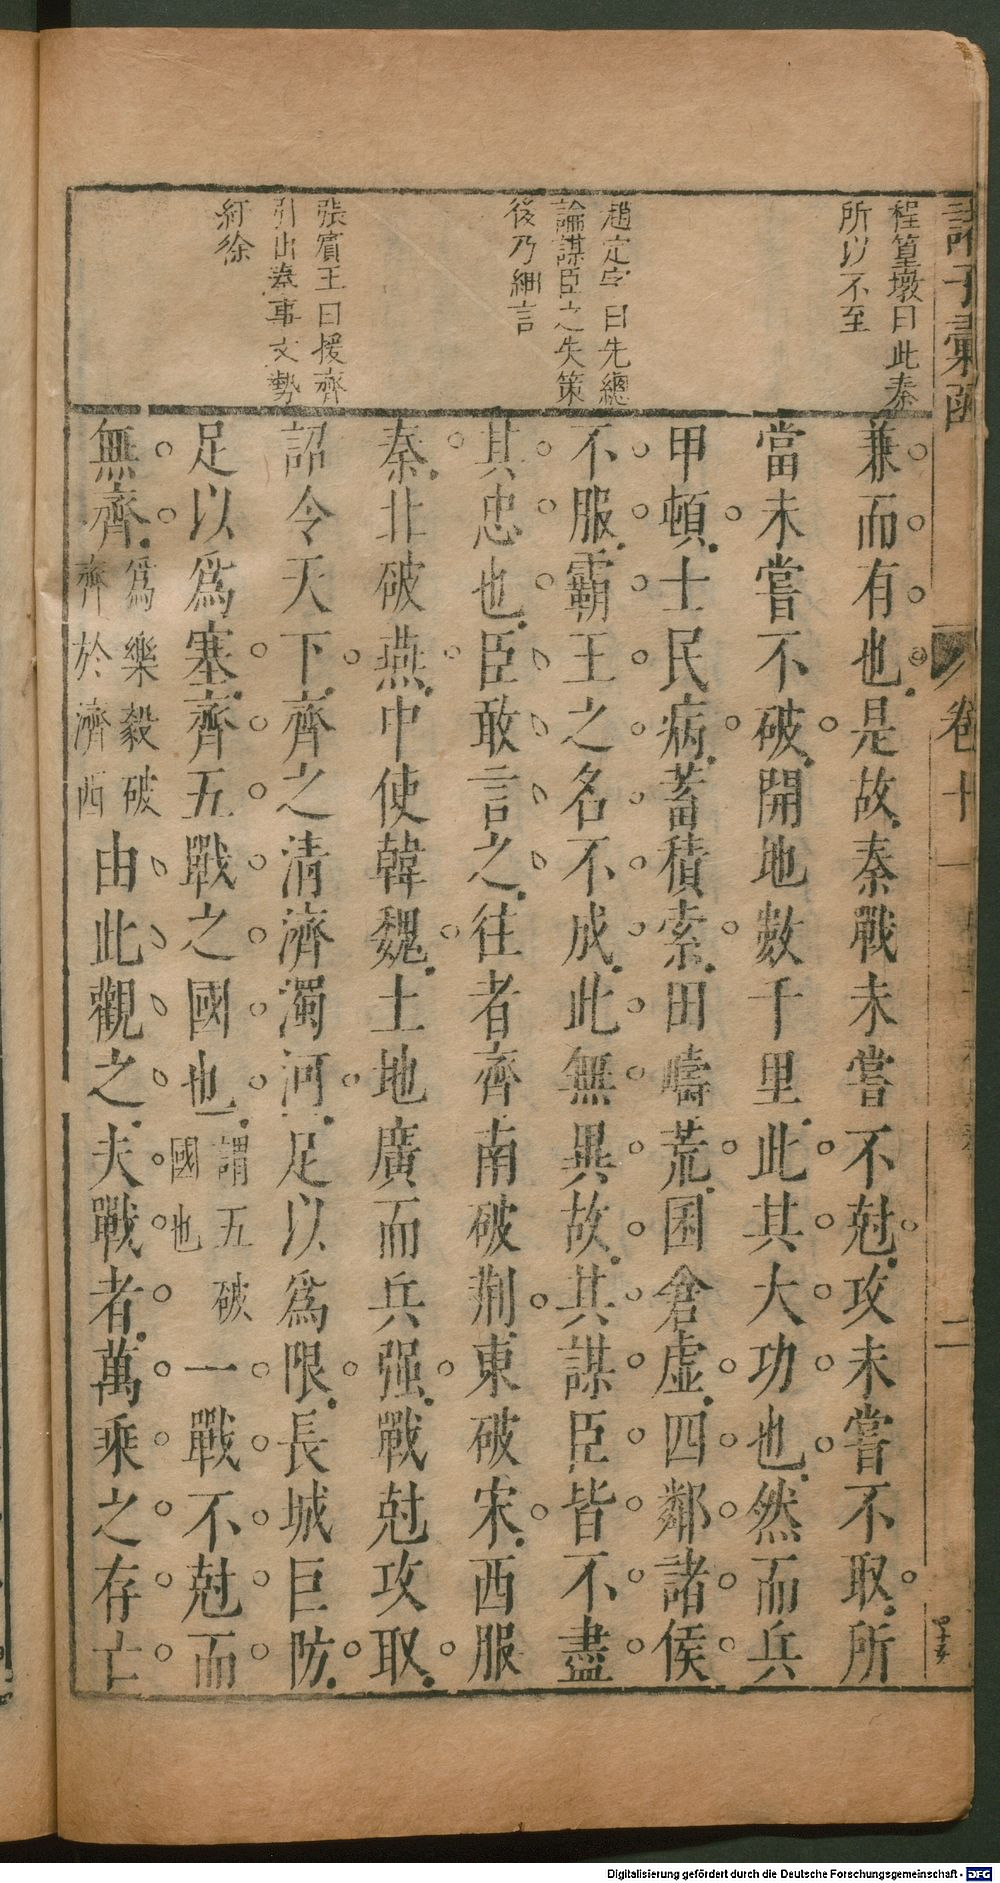 諸子彙函
卷十一
二
程篁墩曰此秦
所以不至
趙定宇曰先總
論謀臣之失策
後乃細言
張賓王曰援齊
引出秦事文勢
紆徐
兼而有也是故秦戰未嘗不尅攻未嘗不取所
當未嘗不破開地數千里此其大功也然而兵
甲頓士民病蓄積索田疇荒囷倉虛四鄰諸侯
不服霸王之名不成此無異故其謀臣皆不盡
其忠也臣敢言之往者齊南破荆東破宋西服
秦北破燕中使韓魏土地廣而兵强戰尅攻取
詔令天下齊之清濟濁河足以爲限長城巨防
足以爲塞齊五戰之國也謂五破國也一戰不尅而
無齊爲樂毅破齊於濟西由此觀之夫戰者萬乘之存亡
Digitalisierung gefördert durch die Deutsche Forschungsgemeinschaft - DFG